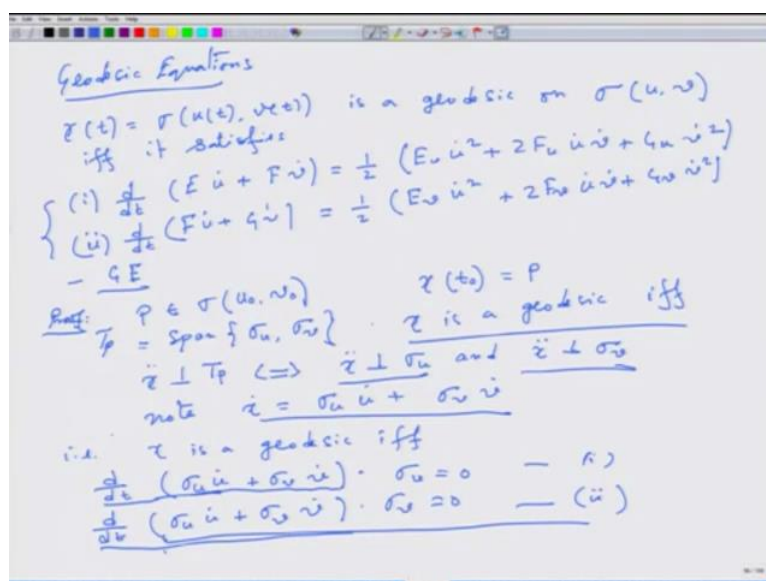 Geodesic Equations
γ(t) = σ(u(t), v(t)) is a geodesic on σ(u, v)
iff it satisfies
(i) d/dt (E u̇ + F v̇) = 1/2 (E_u u̇² + 2F_u u̇ v̇ + G_u v̇²)
(ii) d/dt (F u̇ + G v̇) = 1/2 (E_v u̇² + 2F_v u̇ v̇ + G_v v̇²)
– GE
Proof: P ∈ σ(u₀, v₀) γ(t₀) = P
T_P = Span {σ_u, σ_v} . γ is a geodesic iff
γ̈ ⊥ T_P <=> γ̈ ⊥ σ_u and γ̈ ⊥ σ_v
note γ̇ = σ_u u̇ + σ_v v̇
i.e. γ is a geodesic iff
d/dt (σ_u u̇ + σ_v v̇) · σ_u = 0 — (i)
d/dt (σ_u u̇ + σ_v v̇) · σ_v = 0 — (ii)